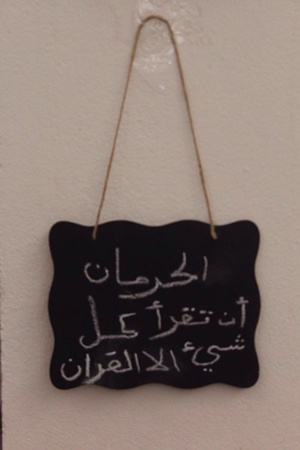 الحرمان
أن تقرأ كل
شيء الا القران